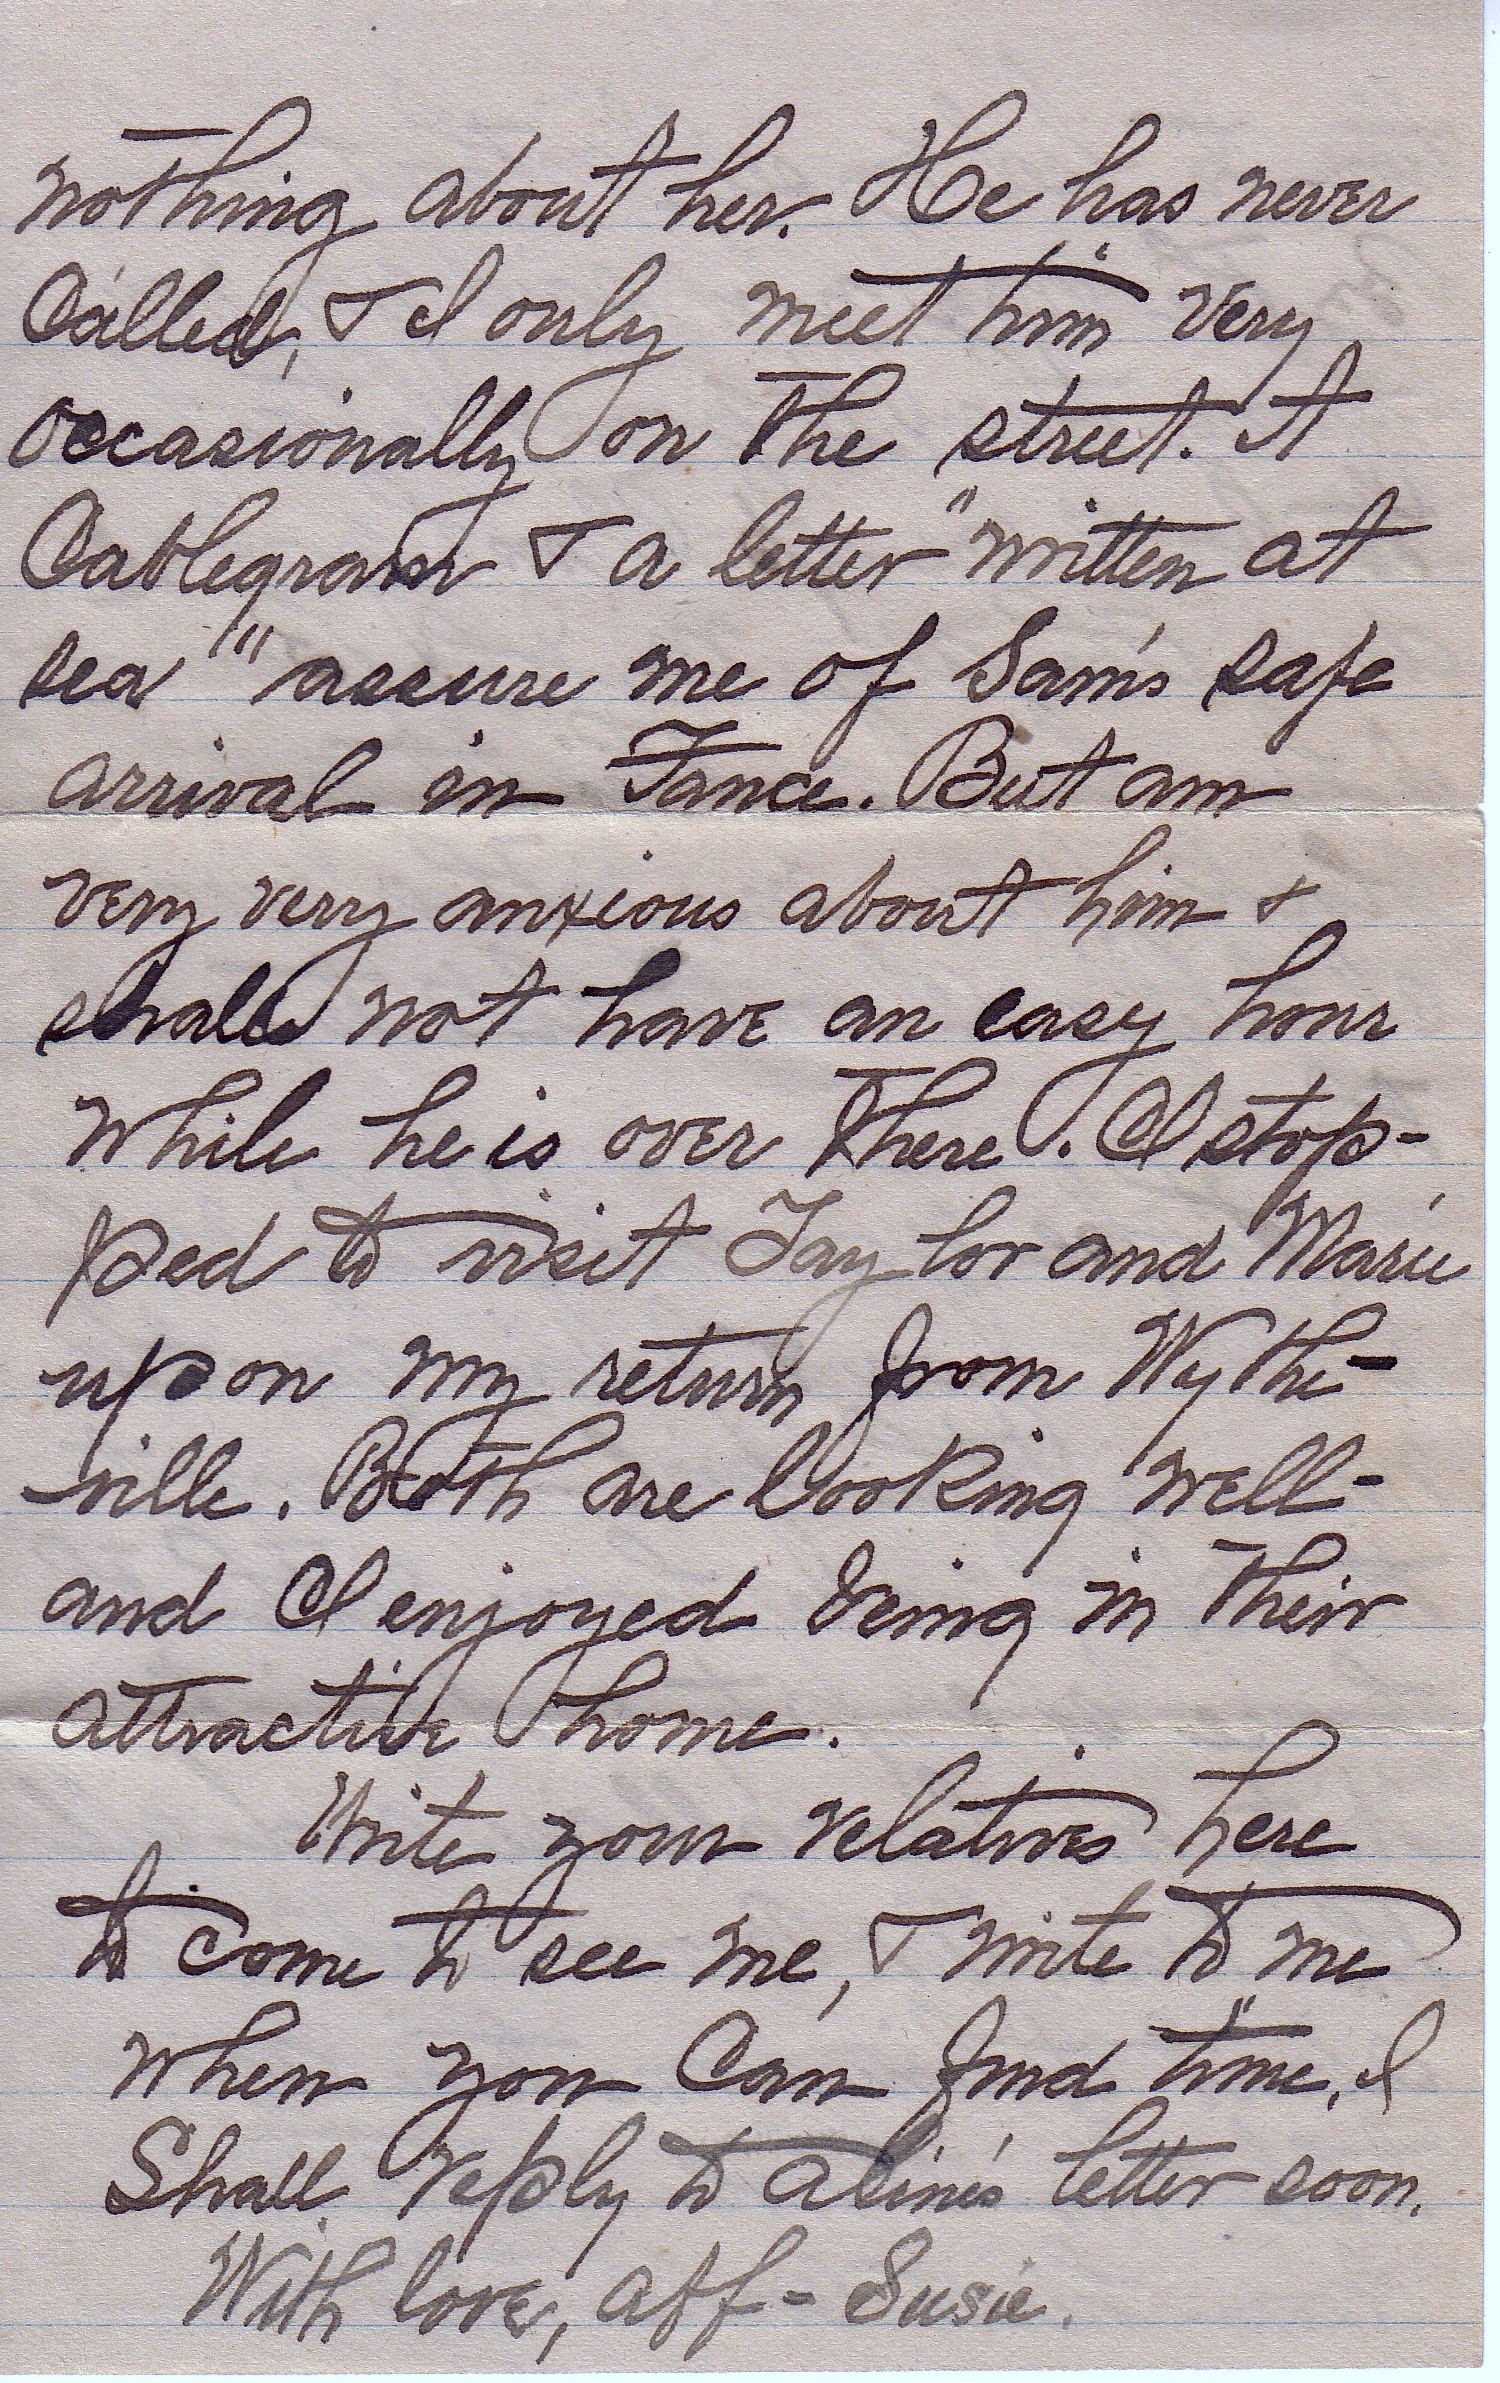 nothing about her. He has never
Called, & I only meet him very
occasionally on the street. A
Cablegram & a letter "written at
sea" assure me of Sam's safe
arrival in Fance. But am
very very anxious about him &
shall not have an easy hour
while he is over there. I stop-
ped to visit Taylor and Marie
upon my return from Wythe-
ville. Both are looking well-
and I enjoyed being in their
attractive home.
Write your relatives here
to come to see me, & write to me
when you can find time, I
Shall reply to Aline's letter soon.
With love, aff- Susie.